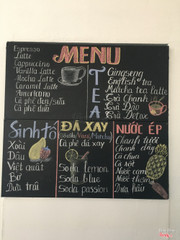 MENU
Espresso
Latte
Cappucchino
Vanilla Latte
Mocha Latte
Caramel Latte
Americano
Cà phê đen/sữa
Cà phê
TEA
Ginseng
English tea
Matcha tea latte
Trà Chanh
Trà Đào
Trà
Detox
Sinh tố
Xoài
Dâu
Việt quất
Bơ
Dừa trái
ĐÁ XAY
Matcha
Cà phê đá xay
SODA
Soda Lemon
Soda blue
Soda passion
NƯỚC ÉP
Chanh tươi
Cà chua
Cà rốt
Cam
Thơm
Dưa hấu